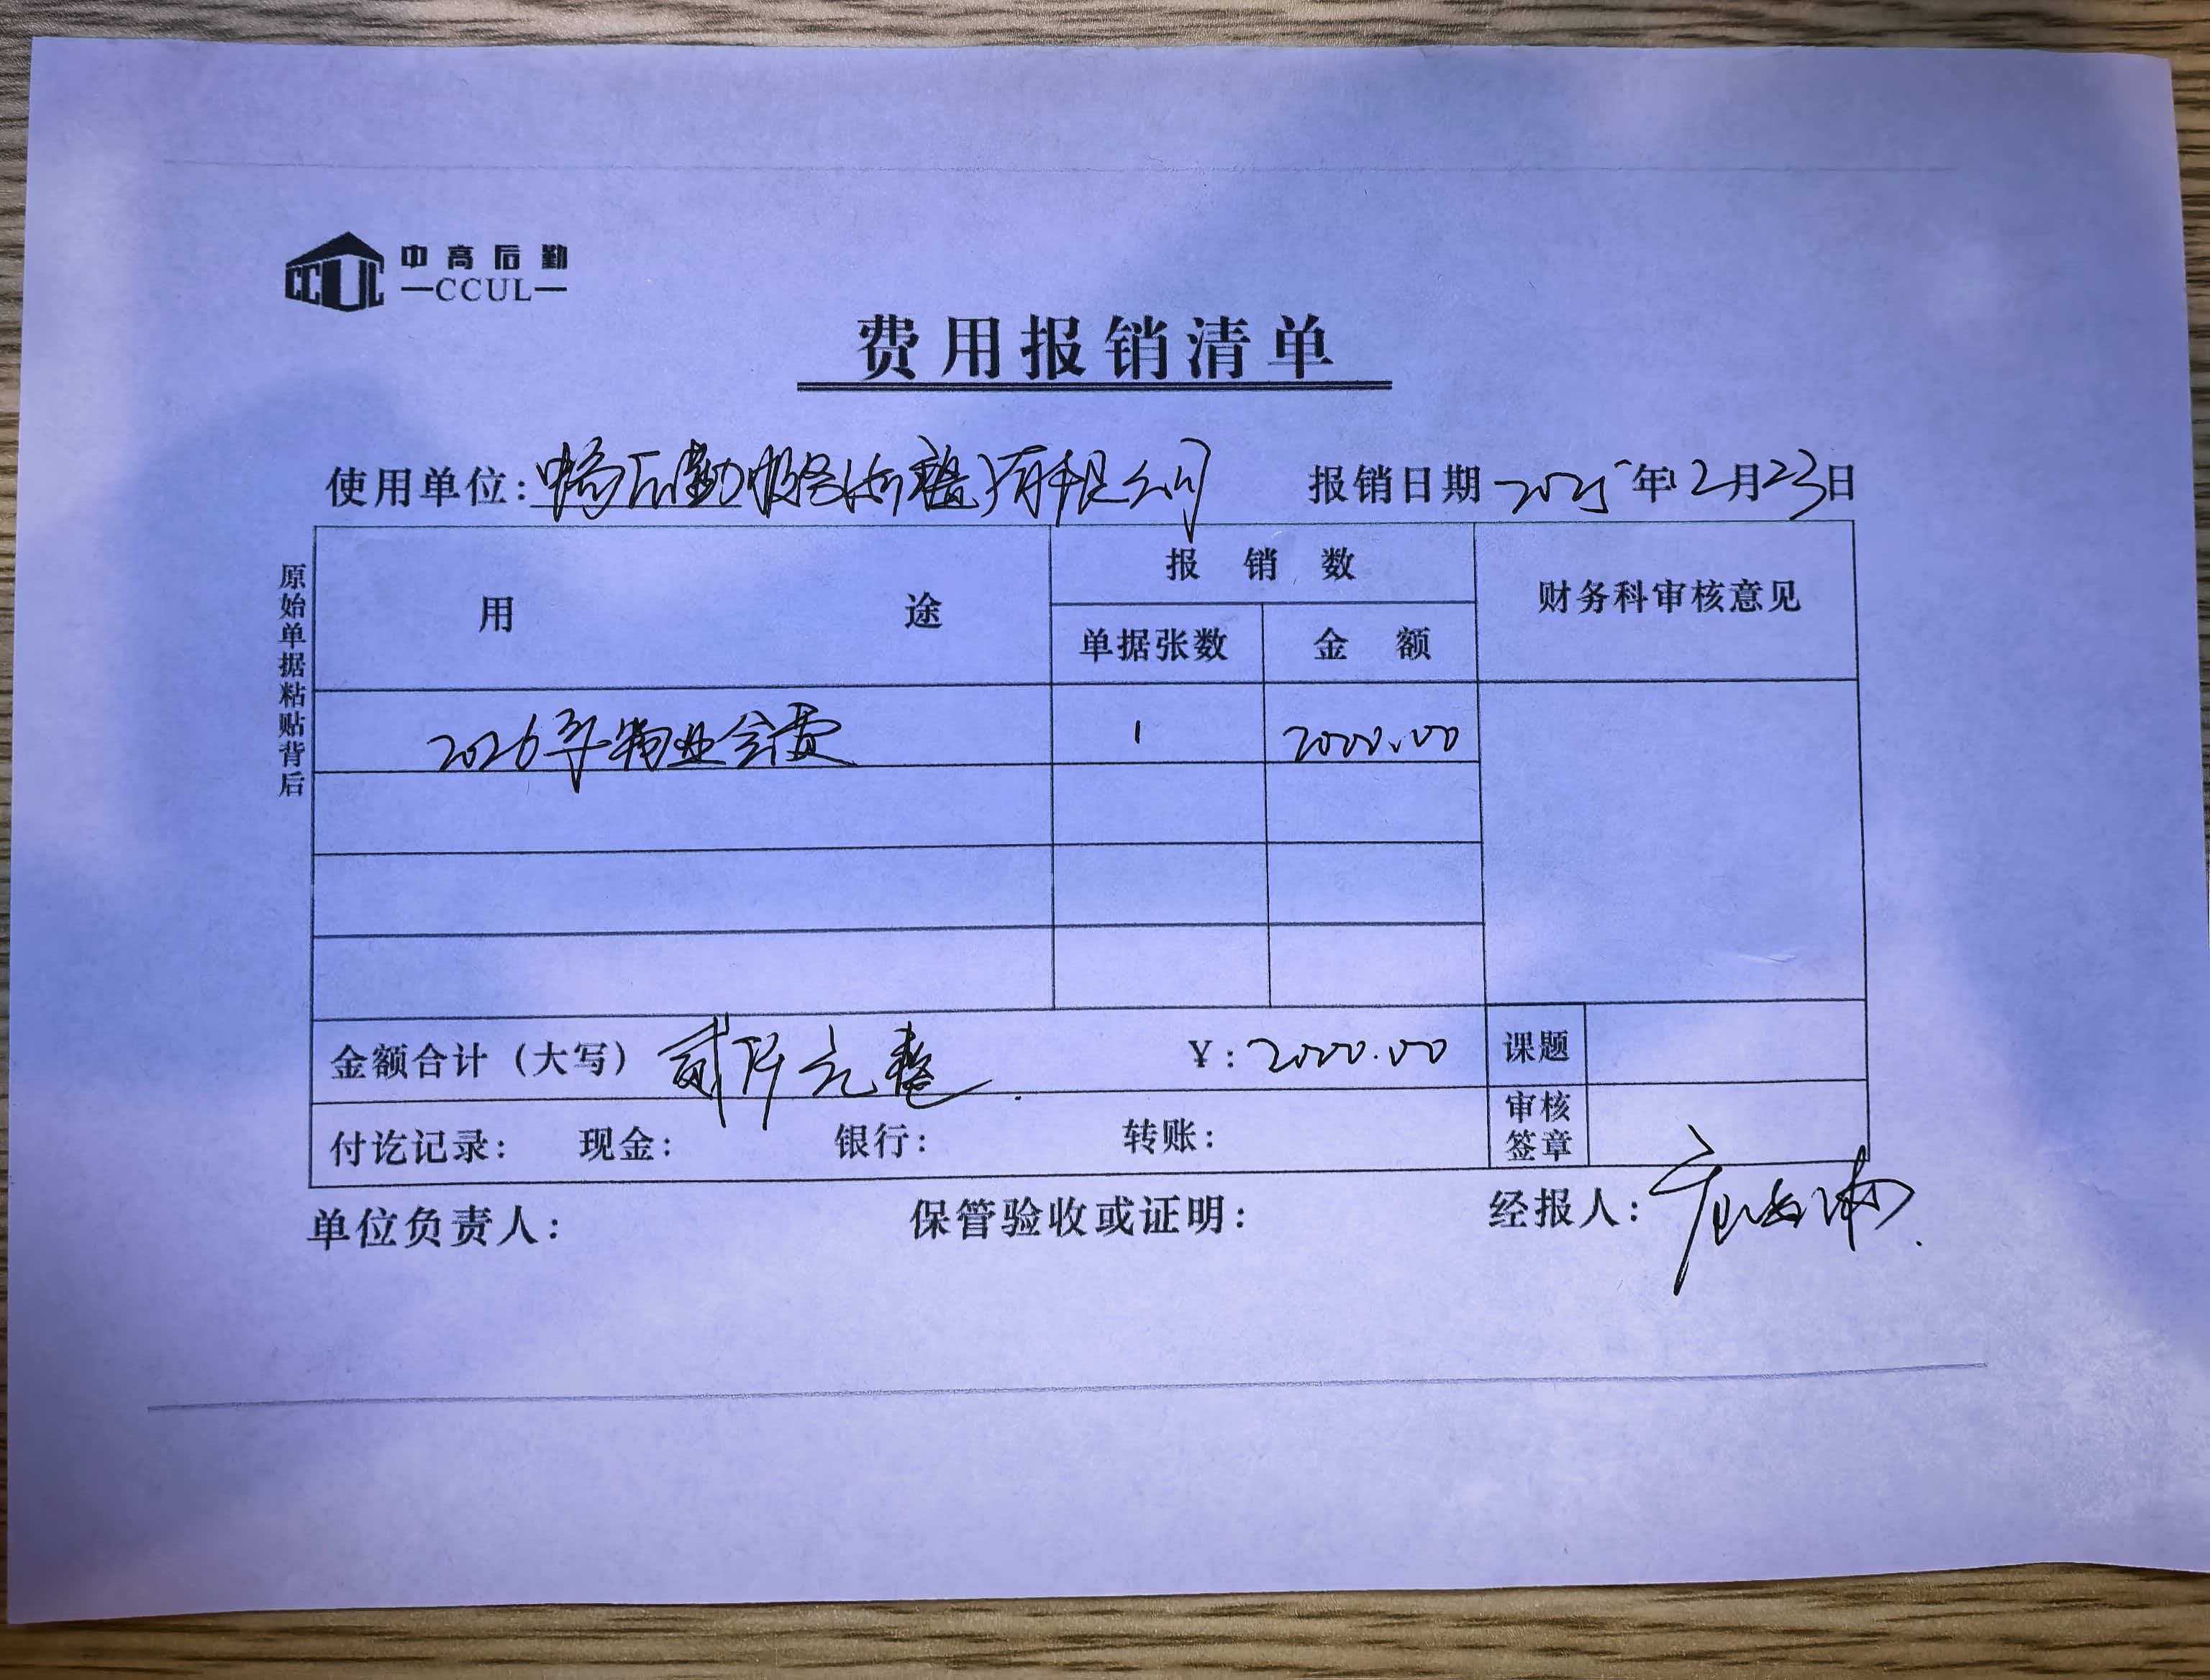 中高后勤
CCUL
费用报销清单
使用单位：中高后勤服务 有限公司 报销日期 2025年12月23日
原始单据粘贴背后
用途 报销数 财务科审核意见
单据张数 金额
2026年物业会费 1 2000.00
金额合计（大写） 贰仟元整 ¥：2000.00 课题
付讫记录： 现金： 银行： 转账： 审核签章
单位负责人： 保管验收或证明： 经报人：